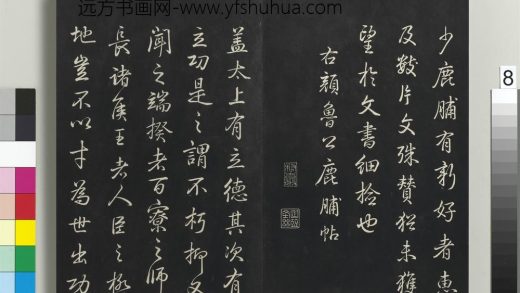 远方书画网-www.yfshuhua.com
少鹿脯有新好者惠
及数片文殊赞犹未獲
望於文書细捡也
右顔魯公鹿脯帖
盖太上有立德其次有
立功是之謂不朽抑又
聞之端揆者百寮之师
長诸侯王者人臣之极
地豈不以才為世出功
8